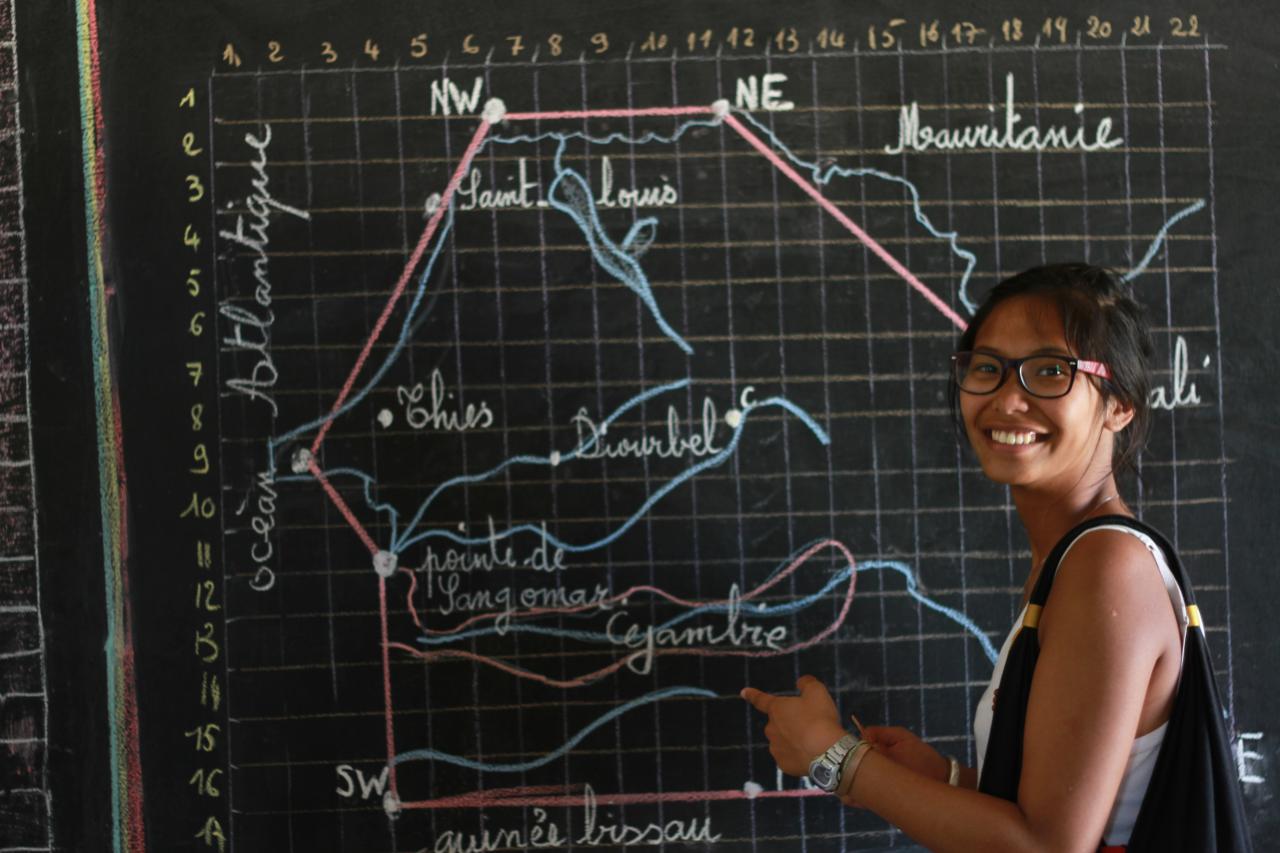 1 2 3 4 5 6 7 8 9 10 11 12 13 14 15 16 17 18 19 20 21 22
1
2
3
4
5
6
7
8
9
10
11
12
13
14
15
16
17
NW
NE
Mauritanie
Saint-louis
océan Atlantique
ali
Thies
C
Diourbel
pointe de
Sangomar
Cejambre
SW
E
guinée bissau